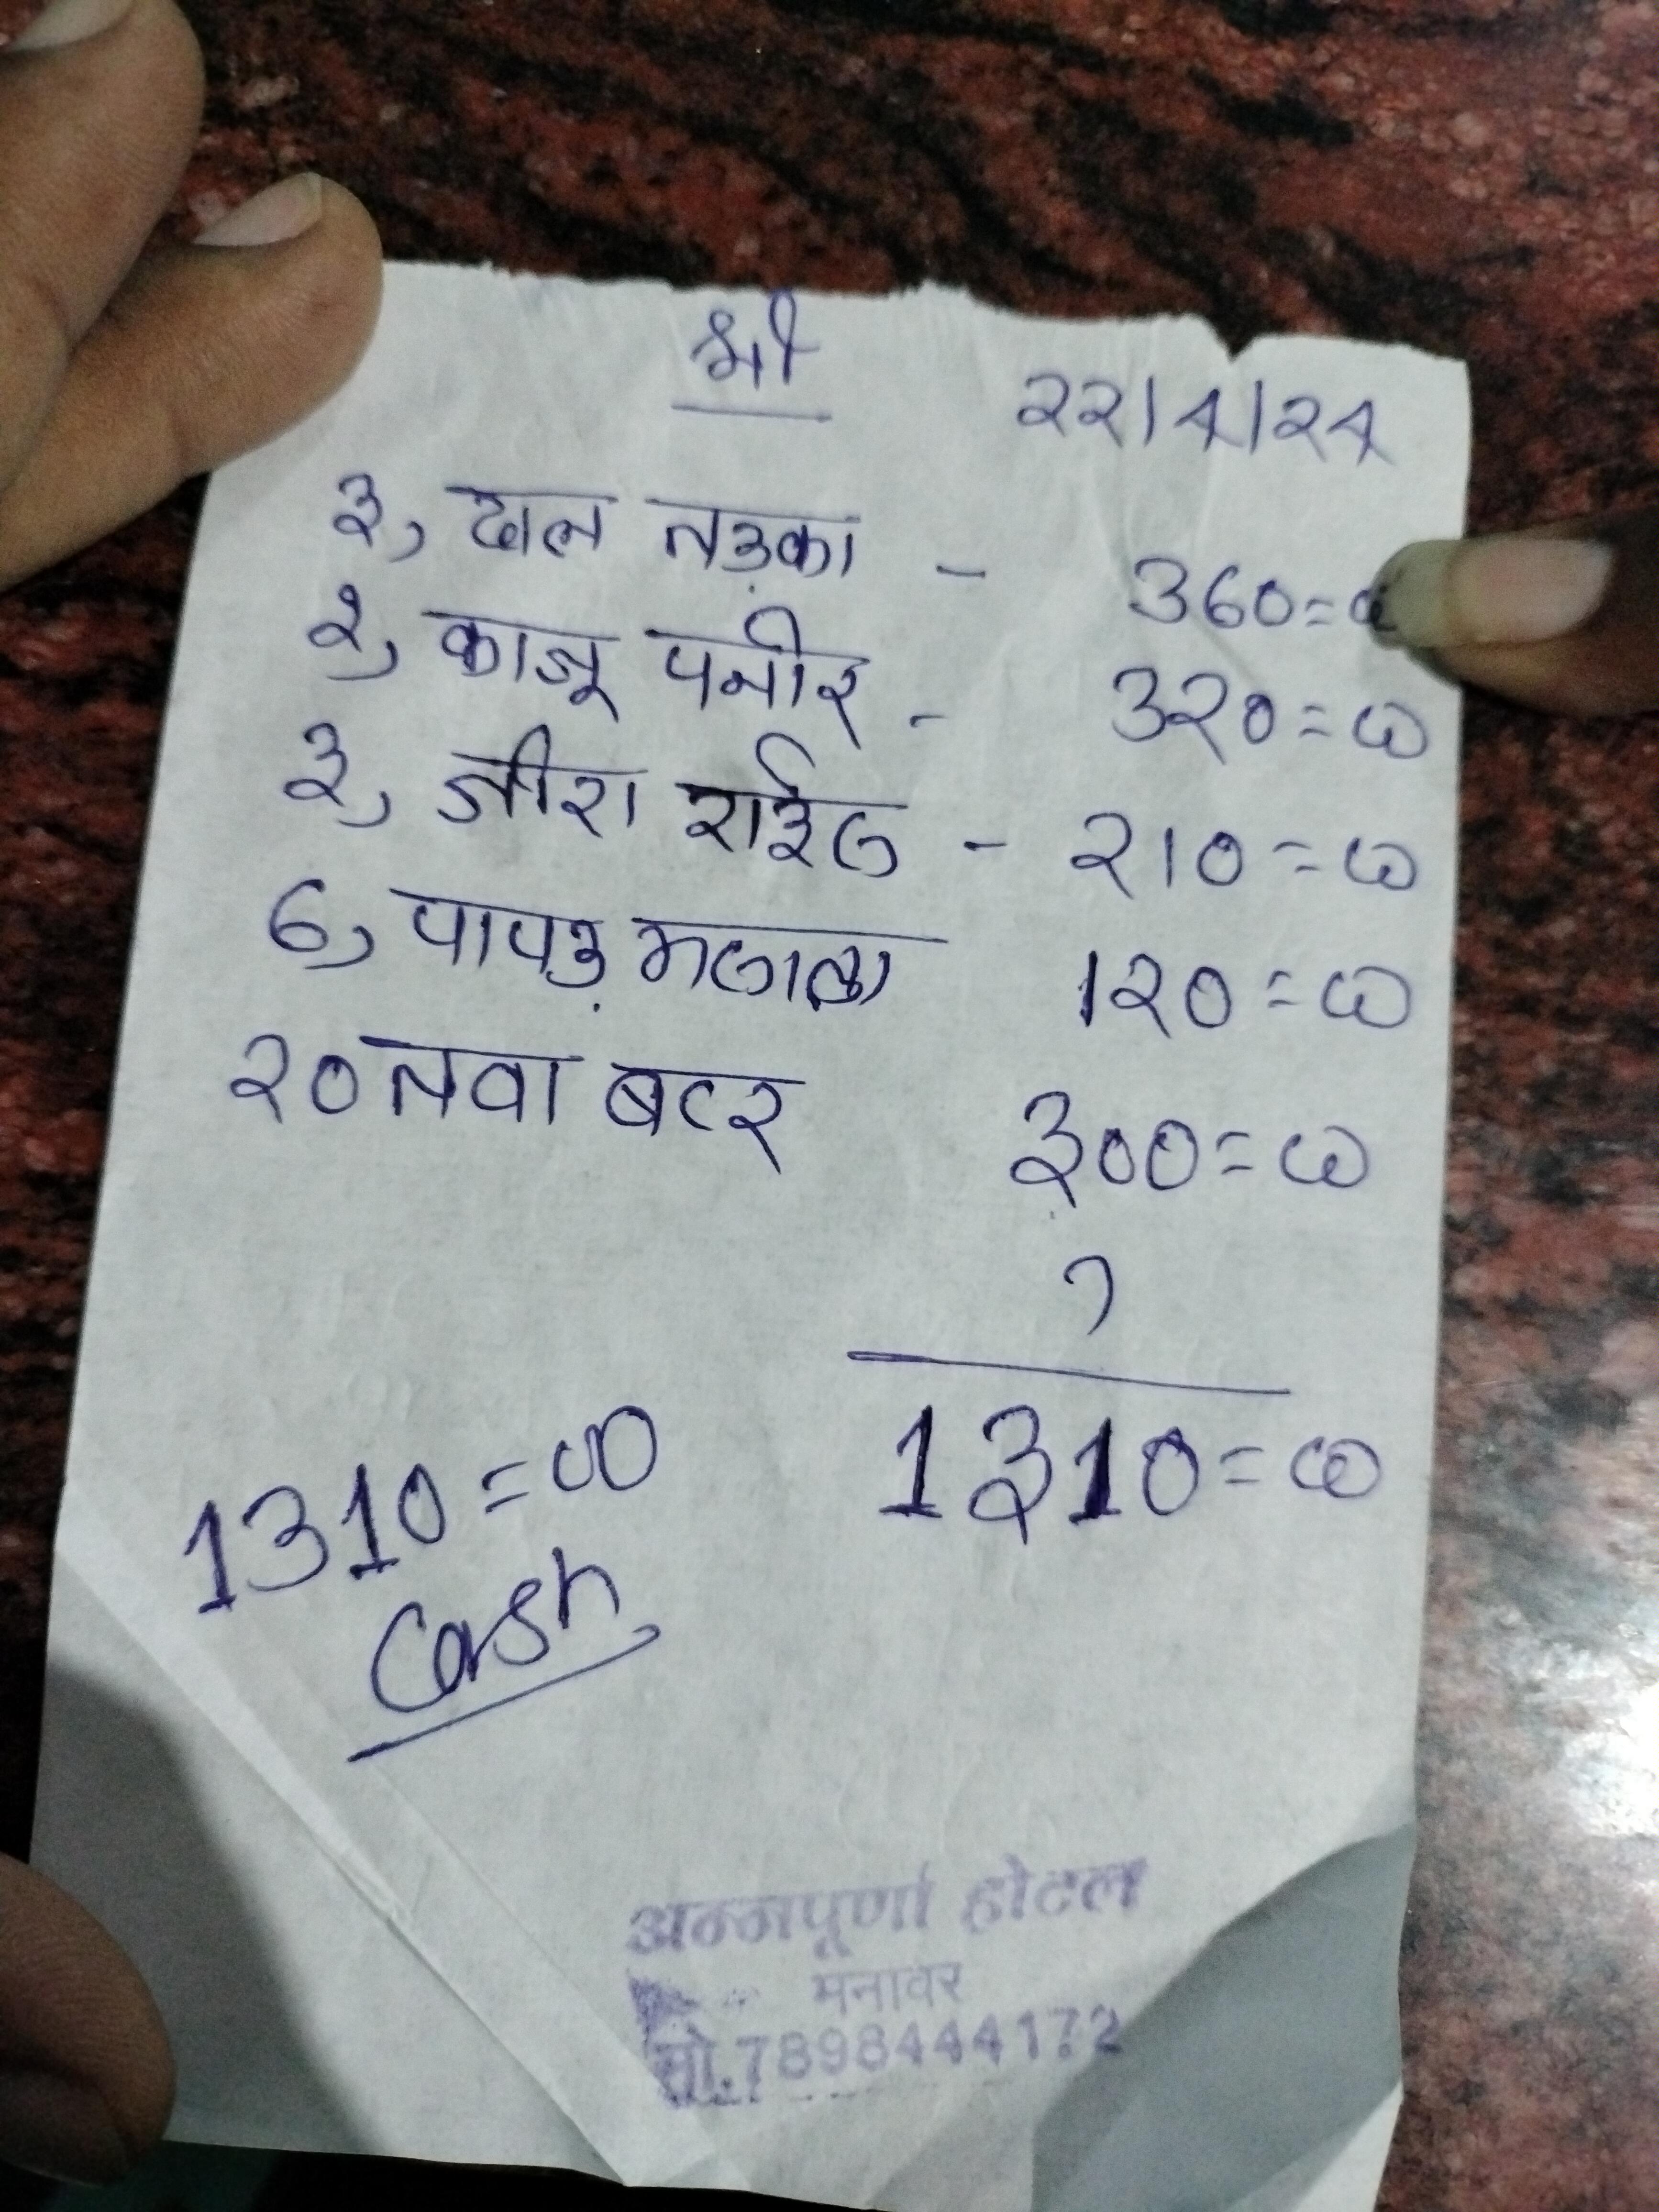 श्री
२२/4/२4
३, दाल तड़का - 360=00
२, काजू पनीर - 3२0=00
३, जीरा राईस - २10=00
6, पापड़ मसाला 1२0=00
२0 तवा बटर ३00=00
1३10=00
1310=00
Cash
अन्नपूर्णा होटल
मनावर
मो.7898444172